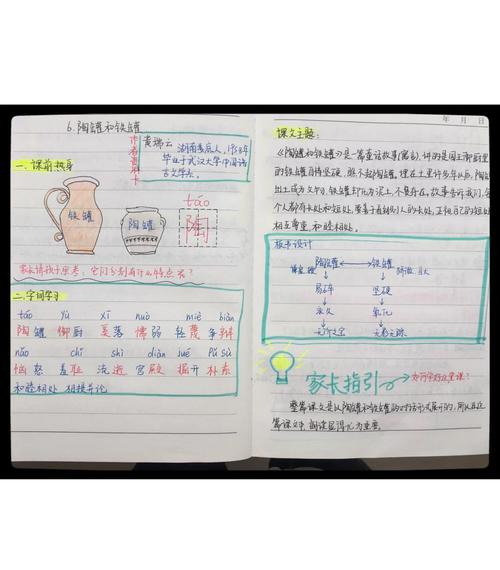 6.陶罐和铁罐
作者资料卡
黄瑞云
湖南娄底人，1958年
毕业于武汉大学中国语
言文学系。
一、课前热身
铁罐
陶罐
táo
陶
家长请孩子思考，它们分别有什么特点？
二、字词学习
táo yù xī nuò miè biàn
陶罐 御厨 奚落 懦弱 轻蔑 争辩
nǎo chǐ shì diàn jué pǔ sù
恼怒 羞耻 流逝 宫殿 掘开 朴素
和睦相处 相提并论
年 月 日
课文主题：
《陶罐和铁罐》是一篇童话故事(寓言)，讲的是国王御厨里
的铁罐自恃坚硬，瞧不起陶罐。埋在土里许多年以后，陶罐
出土成为文物，铁罐却化为泥土，不复存在。故事告诉我们，每
个人都有长处和短处，要善于看到别人的长处，正视自己的短处
相互尊重，和睦相处。
板书设计
陶罐 铁罐
谦虚 骄傲
易碎 坚硬
永久 氧化
无价之宝 无影无踪
家长指引
如何学好这堂课？
整篇课文是以陶罐和铁罐的对话形式展开的，所以在这
篇课文中，朗读显得尤为重要。